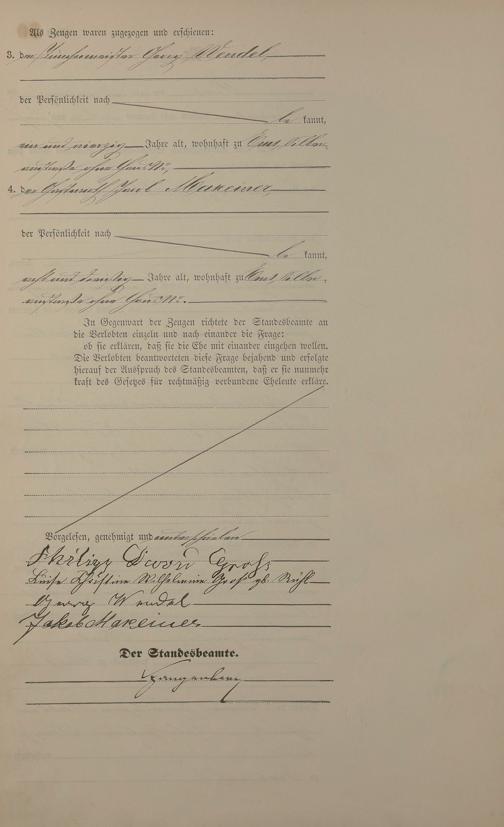 Als Zeugen waren zugezogen und erschienen:
3. der Tünchermeister Georg Wendel,
der Persönlichkeit nach
be kannt,
und vierzig Jahre alt, wohnhaft zu Ems,
ohne Haus N.,
4. der Jacob Mareiner,
der Persönlichkeit nach
be kannt,
acht und dreißig Jahre alt, wohnhaft zu Ems,
ohne Haus N.
In Gegenwart der Zeugen richtete der Standesbeamte an
die Verlobten einzeln und nach einander die Frage:
ob sie erklären, daß sie die Ehe mit einander eingehen wollen.
Die Verlobten beantworteten diese Frage bejahend und erfolgte
hierauf der Ausspruch des Standesbeamten, daß er sie nunmehr
kraft des Gesetzes für rechtmäßig verbundene Eheleute erkläre.
Vorgelesen, genehmigt und unterschrieben
Philipp David Groß
Luise Christine Wilhelmine Groß gb. Rühl
Georg Wendel
Jakob Mareiner
Der Standesbeamte.